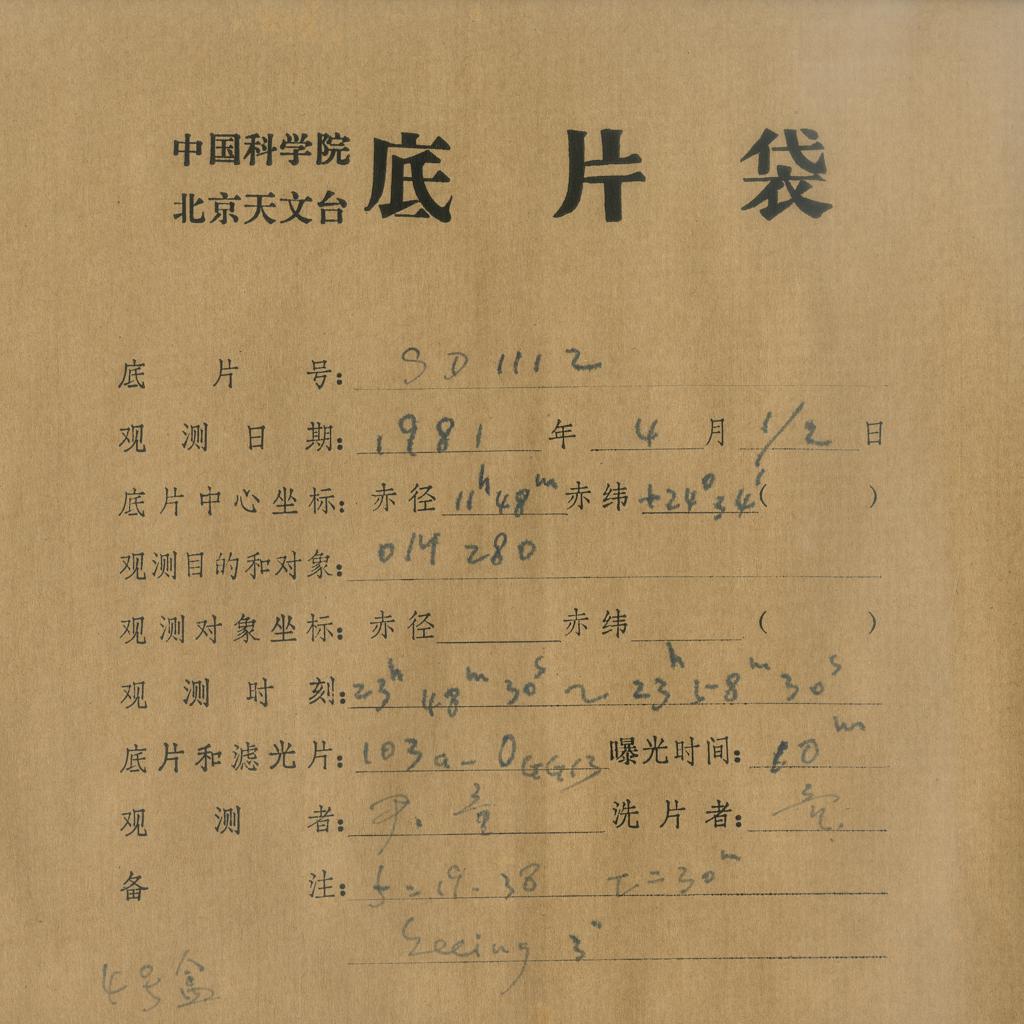 中国科学院
北京天文台 底片袋
底片号: SD 1112
观测日期: 1981 年 4 月 1/2 日
底片中心坐标: 赤径 11h 48m 赤纬 +24° 34′ ( )
观测目的和对象: 280
观测对象坐标: 赤径 赤纬 ( )
观测时刻: 23h 48m 30s ~ 23h 58m 30s
底片和滤光片: 103a-O GG13 曝光时间: 10m
观测者: 洗片者:
备注: f = 19.38 T = 30m
Seeing 3"
4号盒